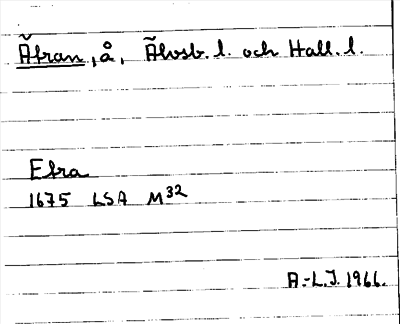 Ätran, å, Älvsb. l. och Hall. l.
Etra
1675 LSA M32
A.-L.J. 1966.